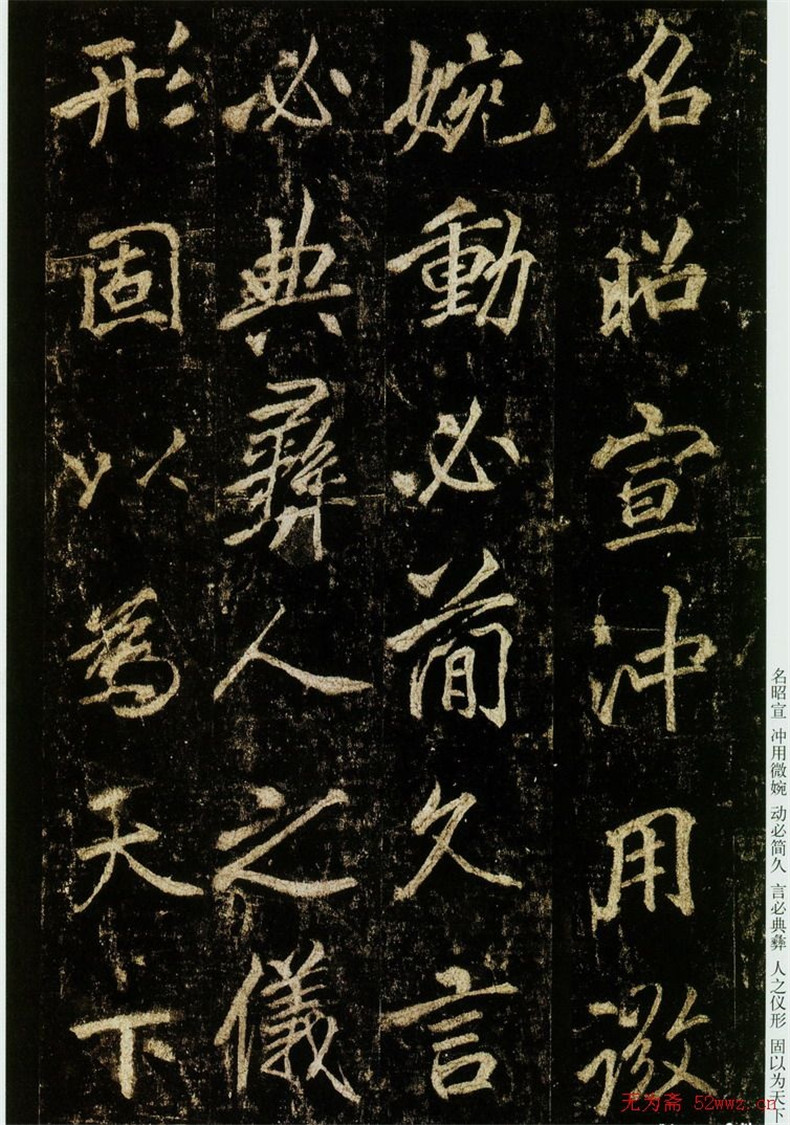 名昭宣冲用微
婉動必简久言
必典彝人之儀
形固以為天下
名昭宣 冲用微婉 动必简久 言必典彝 人之仪形 固以为天下
无为斋 52wwz.cn